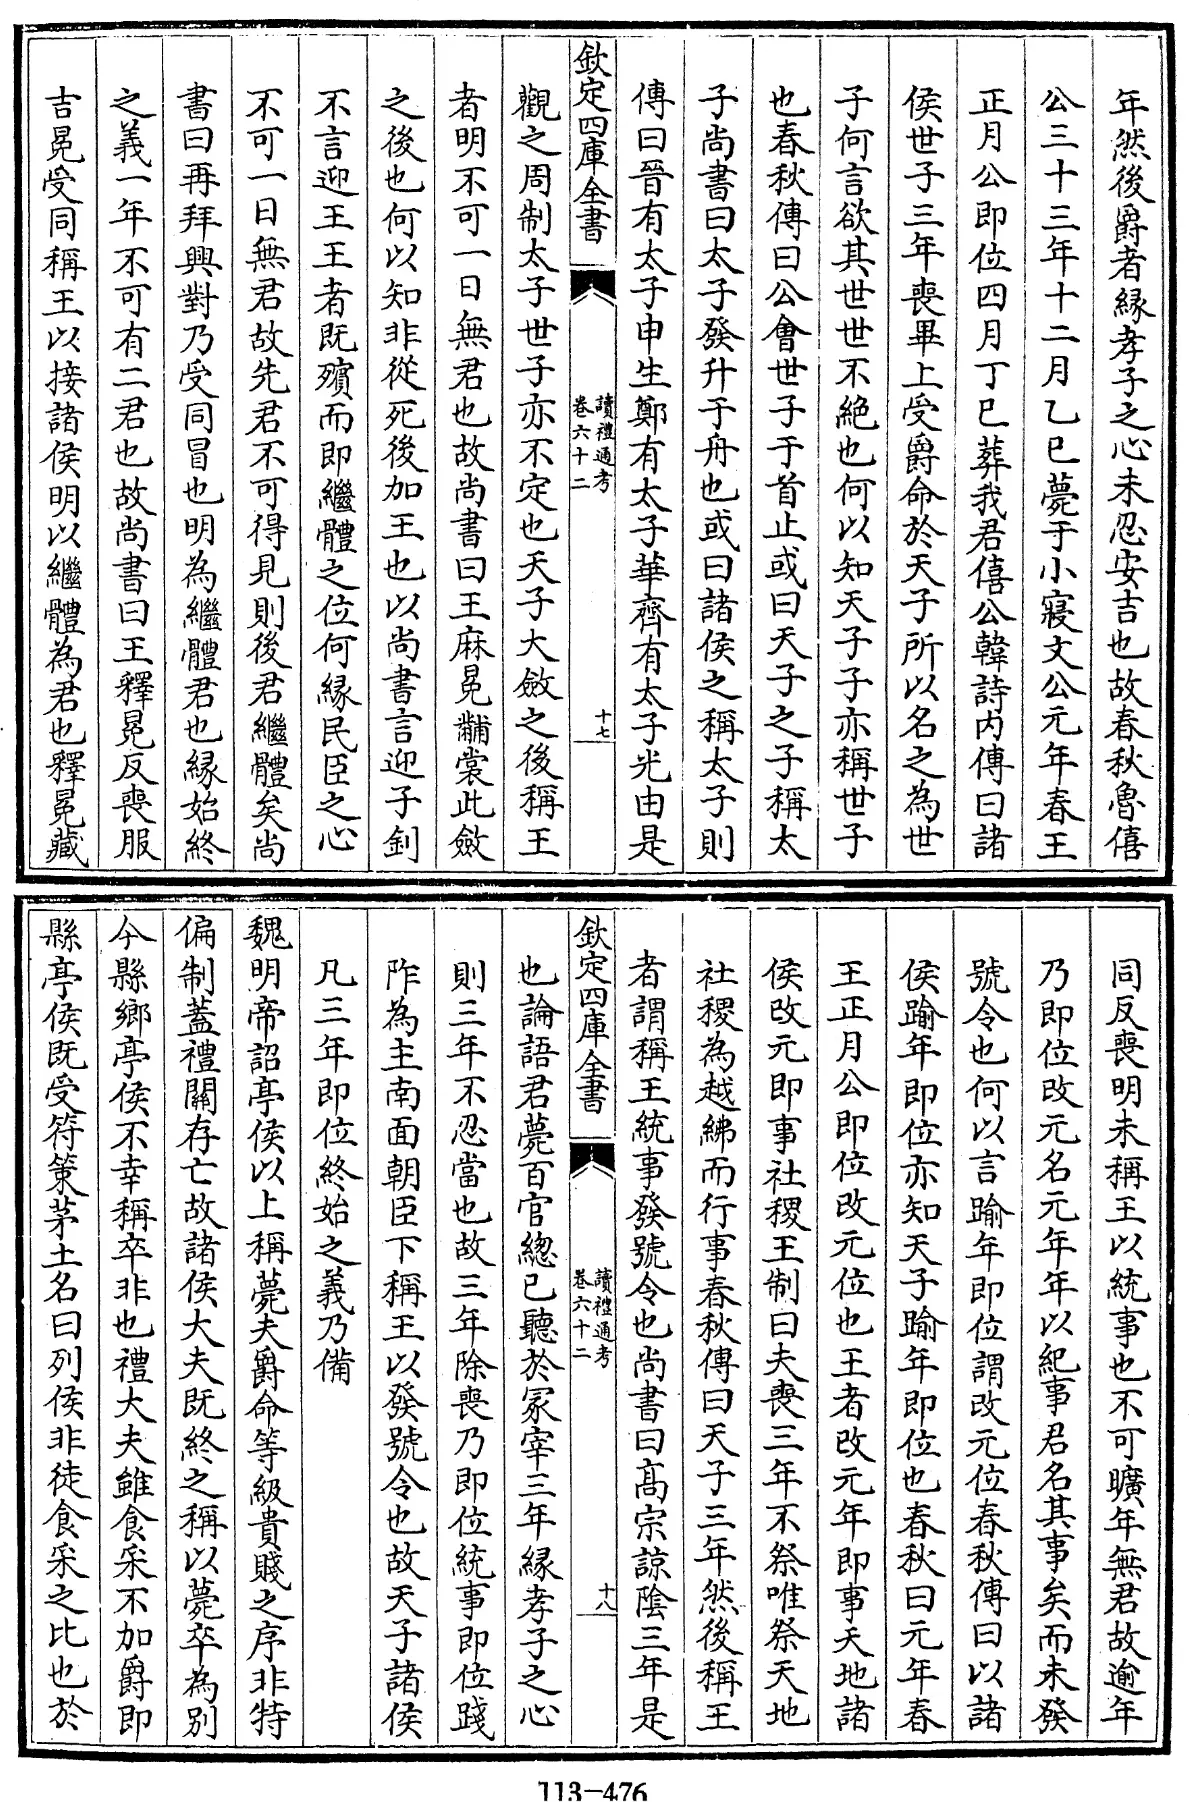 年然後爵者縁孝子之心未忍安吉也故春秋魯僖
公三十三年十二月乙巳薨于小寢文公元年春王
正月公即位四月丁巳葬我君僖公韓詩内傳曰諸
侯世子三年喪畢上受爵命於天子所以名之為世
子何言欲其世世不絶也何以知天子子亦稱世子
也春秋傳曰公會世子于首止或曰天子之子稱太
子尚書曰太子發升于舟也或曰諸侯之稱太子則
傳曰晉有太子申生鄭有太子華齊有太子光由是
欽定四庫全書
讀禮通考
卷六十二
十七
觀之周制太子世子亦不定也天子大斂之後稱王
者明不可一日無君也故尚書曰王麻冕黼裳此斂
之後也何以知非從死後加王也以尚書言迎子釗
不言迎王王者既殯而即繼體之位何縁民臣之心
不可一日無君故先君不可得見則後君繼體矣尚
書曰再拜興對乃受同冒也明為繼體君也縁始終
之義一年不可有二君也故尚書曰王釋冕反喪服
吉冕受同稱王以接諸侯明以繼體為君也釋冕藏
同反喪明未稱王以統事也不可曠年無君故逾年
乃即位改元名元年年以紀事君名其事矣而未發
號令也何以言踰年即位謂改元位春秋傳曰以諸
侯踰年即位亦知天子踰年即位也春秋曰元年春
王正月公即位改元位也王者改元年即事天地諸
侯改元即事社稷王制曰夫喪三年不祭唯祭天地
社稷為越紼而行事春秋傳曰天子三年然後稱王
者謂稱王統事發號令也尚書曰髙宗諒陰三年是
欽定四庫全書
讀禮通考
卷六十二
十八
也論語君薨百官總已聽於冢宰三年縁孝子之心
則三年不忍當也故三年除喪乃即位統事即位踐
阼為主南面朝臣下稱王以發號令也故天子諸侯
凡三年即位終始之義乃備
魏明帝詔亭侯以上稱薨夫爵命等級貴賤之序非特
偏制蓋禮關存亡故諸侯大夫既終之稱以薨卒為别
今縣鄉亭侯不幸稱卒非也禮大夫雖食采不加爵即
縣亭侯既受符策茅土名曰列侯非徒食采之比也於
113-476